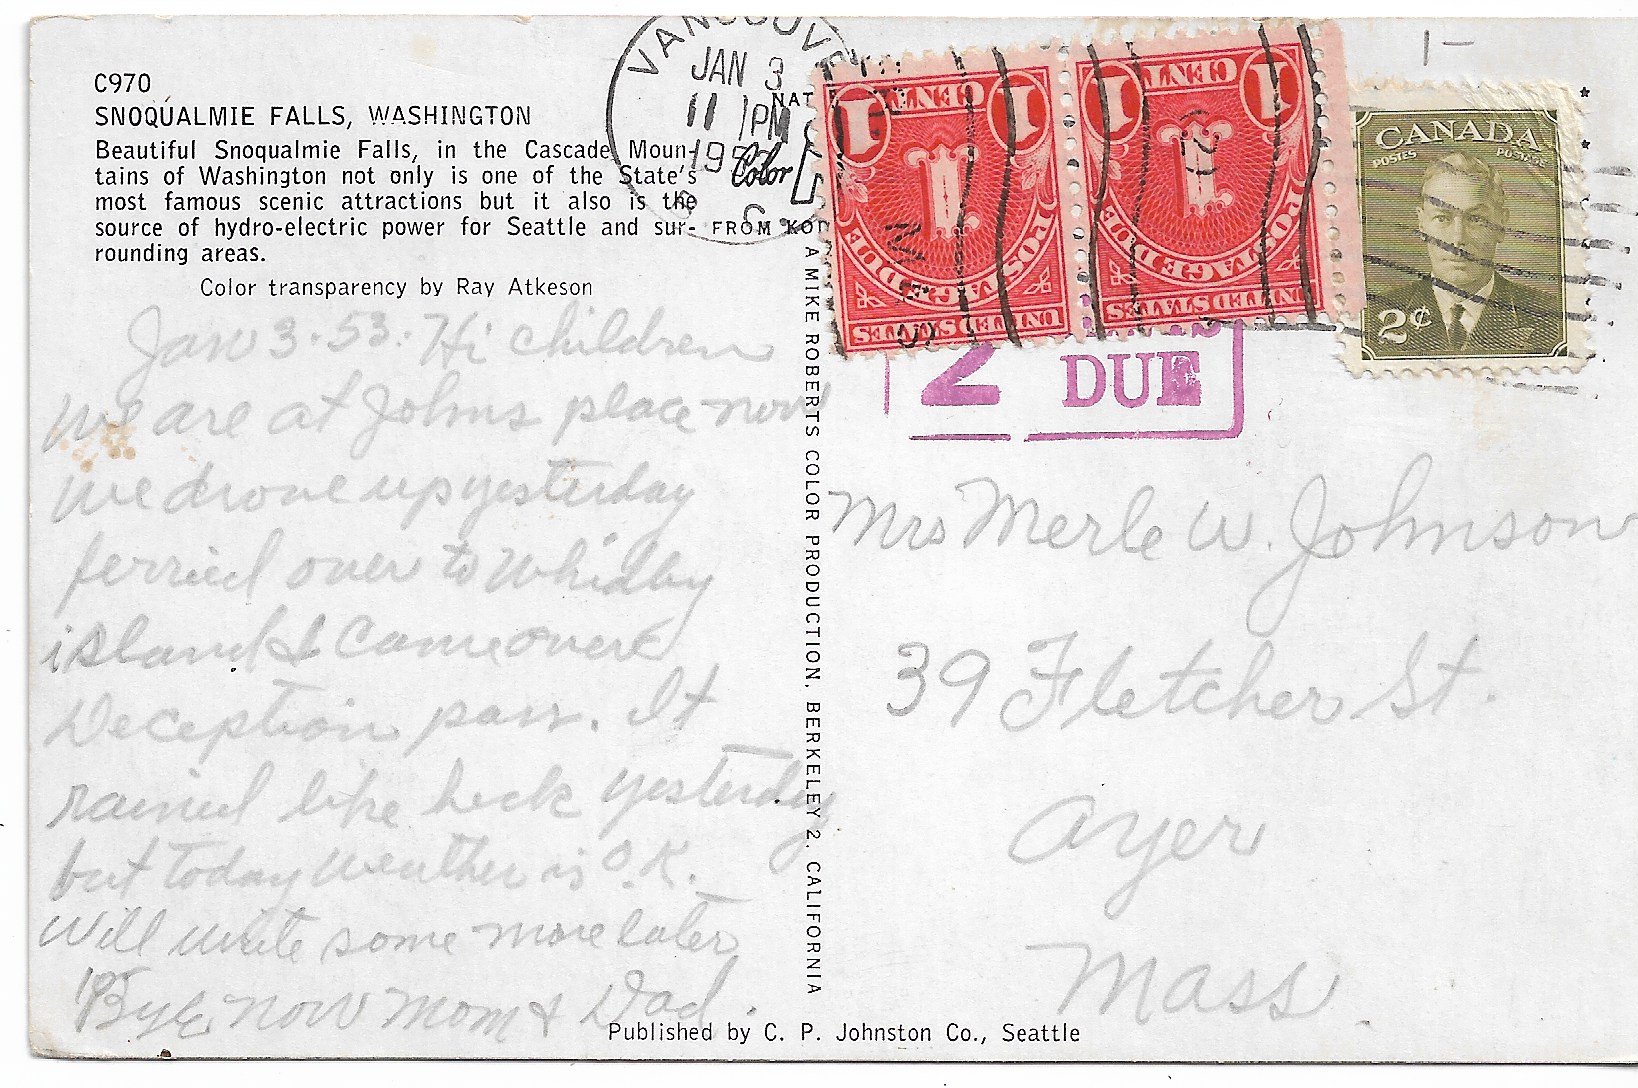 C970
SNOQUALMIE FALLS, WASHINGTON
Beautiful Snoqualmie Falls, in the Cascade Moun-
tains of Washington not only is one of the State's
most famous scenic attractions but it also is the
source of hydro-electric power for Seattle and sur-
rounding areas.
Color transparency by Ray Atkeson
Jan 3-53. Hi children
We are at Johns place now
we drove up yesterday
ferried over to Whidby
island & came over
Deception pass. It
rained like heck yesterday
but today weather is O.K.
Will write some more later
Bye now Mom & Dad.
Published by C. P. Johnston Co., Seattle
A MIKE ROBERTS COLOR PRODUCTION, BERKELEY 2, CALIFORNIA
VANCOUVE
JAN 3
11 PM
195
B. C.
NAT
Color
FROM KOD
1 CENT 1
1
POSTAGE DUE
UNITED STATES
1 CENT 1
1
POSTAGE DUE
UNITED STATES
CANADA
POSTES POSTAGE
2¢
2
DUE
1-
Mrs Merle W. Johnson
39 Fletcher St.
Ayer
Mass.